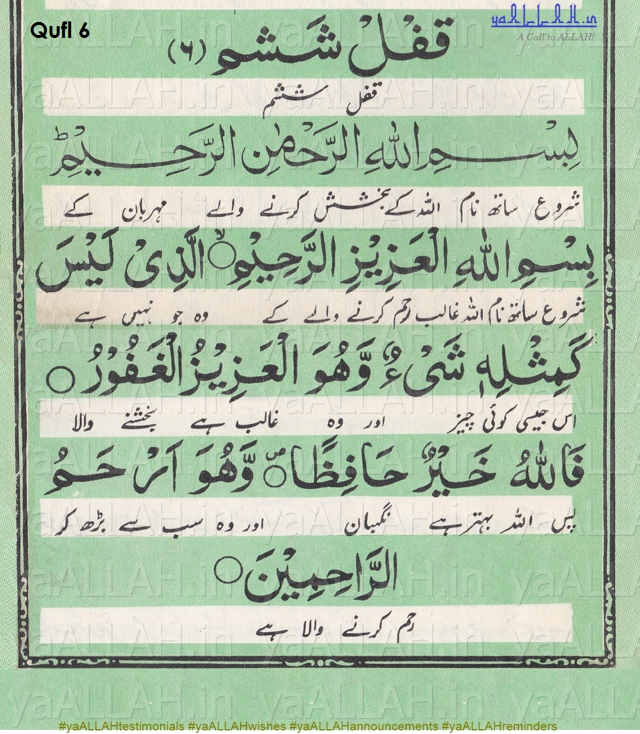 Qufl 6
yaALLAH.in
A Call to ALLAH!
قفل ششم (٦)
قفل ششم
بِسْمِ اللهِ الرَّحْمٰنِ الرَّحِيْمِ ط
شروع ساتھ نام اللہ کے بخشش کرنے والے مہربان کے
بِسْمِ اللهِ الْعَزِيْزِ الرَّحِيْمِ ○ الَّذِىْ لَيْسَ
شروع ساتھ نام اللہ غالب رحم کرنے والے کے وہ جو نہیں ہے
كَمِثْلِهٖ شَىْءٌ وَّهُوَ الْعَزِيْزُ الْغَفُوْرُ ○
اس جیسی کوئی چیز اور وہ غالب ہے بخشنے والا
فَاللهُ خَيْرٌ حَافِظًا ○ وَّهُوَ اَرْحَمُ
پس اللہ بہتر ہے نگہبان اور وہ سب سے بڑھ کر
الرَّاحِمِيْنَ ○
رحم کرنے والا ہے
#yaALLAHtestimonials #yaALLAHwishes #yaALLAHannouncements #yaALLAHreminders